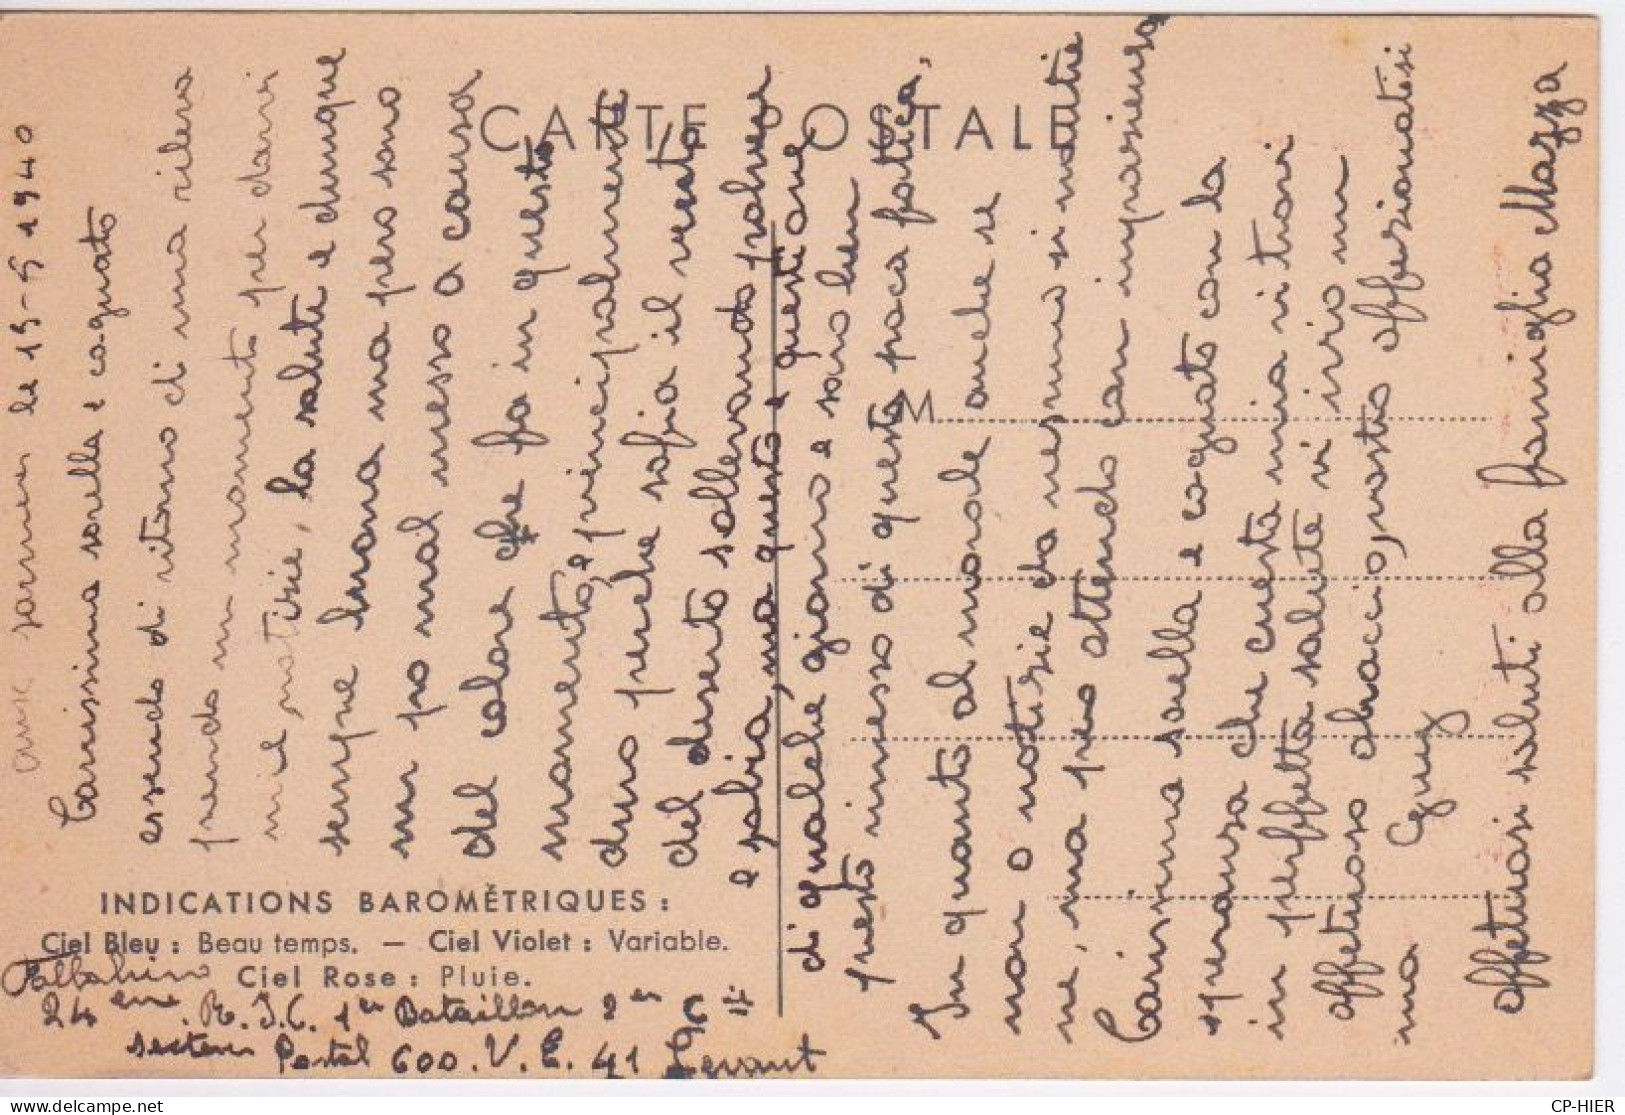 CARTE POSTALE
aux armées le 15-5 1940
Carissima sorella e cognato
essendo di ritorno di una rileva
prendo un momento per darvi
mie notizie, la salute e dunque
sempre buona ma pero sono
un po mal messo a causa
del calore che fa in questo
momento, e principalmente
duro perche sofia il vento
del deserto sollevando polvere
e sabia, ma questo e questione
di qualche giorno e saro ben
presto messo di questa poca fatica,
In quanto al morale anche se
non o notizie da nessuno si mantie
ne, ma pero attendo con impasienza
Carissima sorella e cognato con la
speransa che questa mia vi trovi
in perffetta salute vi invio un
affetuoso abracio, vostro affesionatisi
mo Guy
affettuosi saluti alla famiglia Mazza
M
INDICATIONS BAROMÉTRIQUES :
Ciel Bleu : Beau temps. — Ciel Violet : Variable.
Ciel Rose : Pluie.
24 eme R.I.C. 1er Bataillon 2 er Cie
secteur Postal 600. V. E. 41 Levant
CP-HIER
https://www.delcampe.net